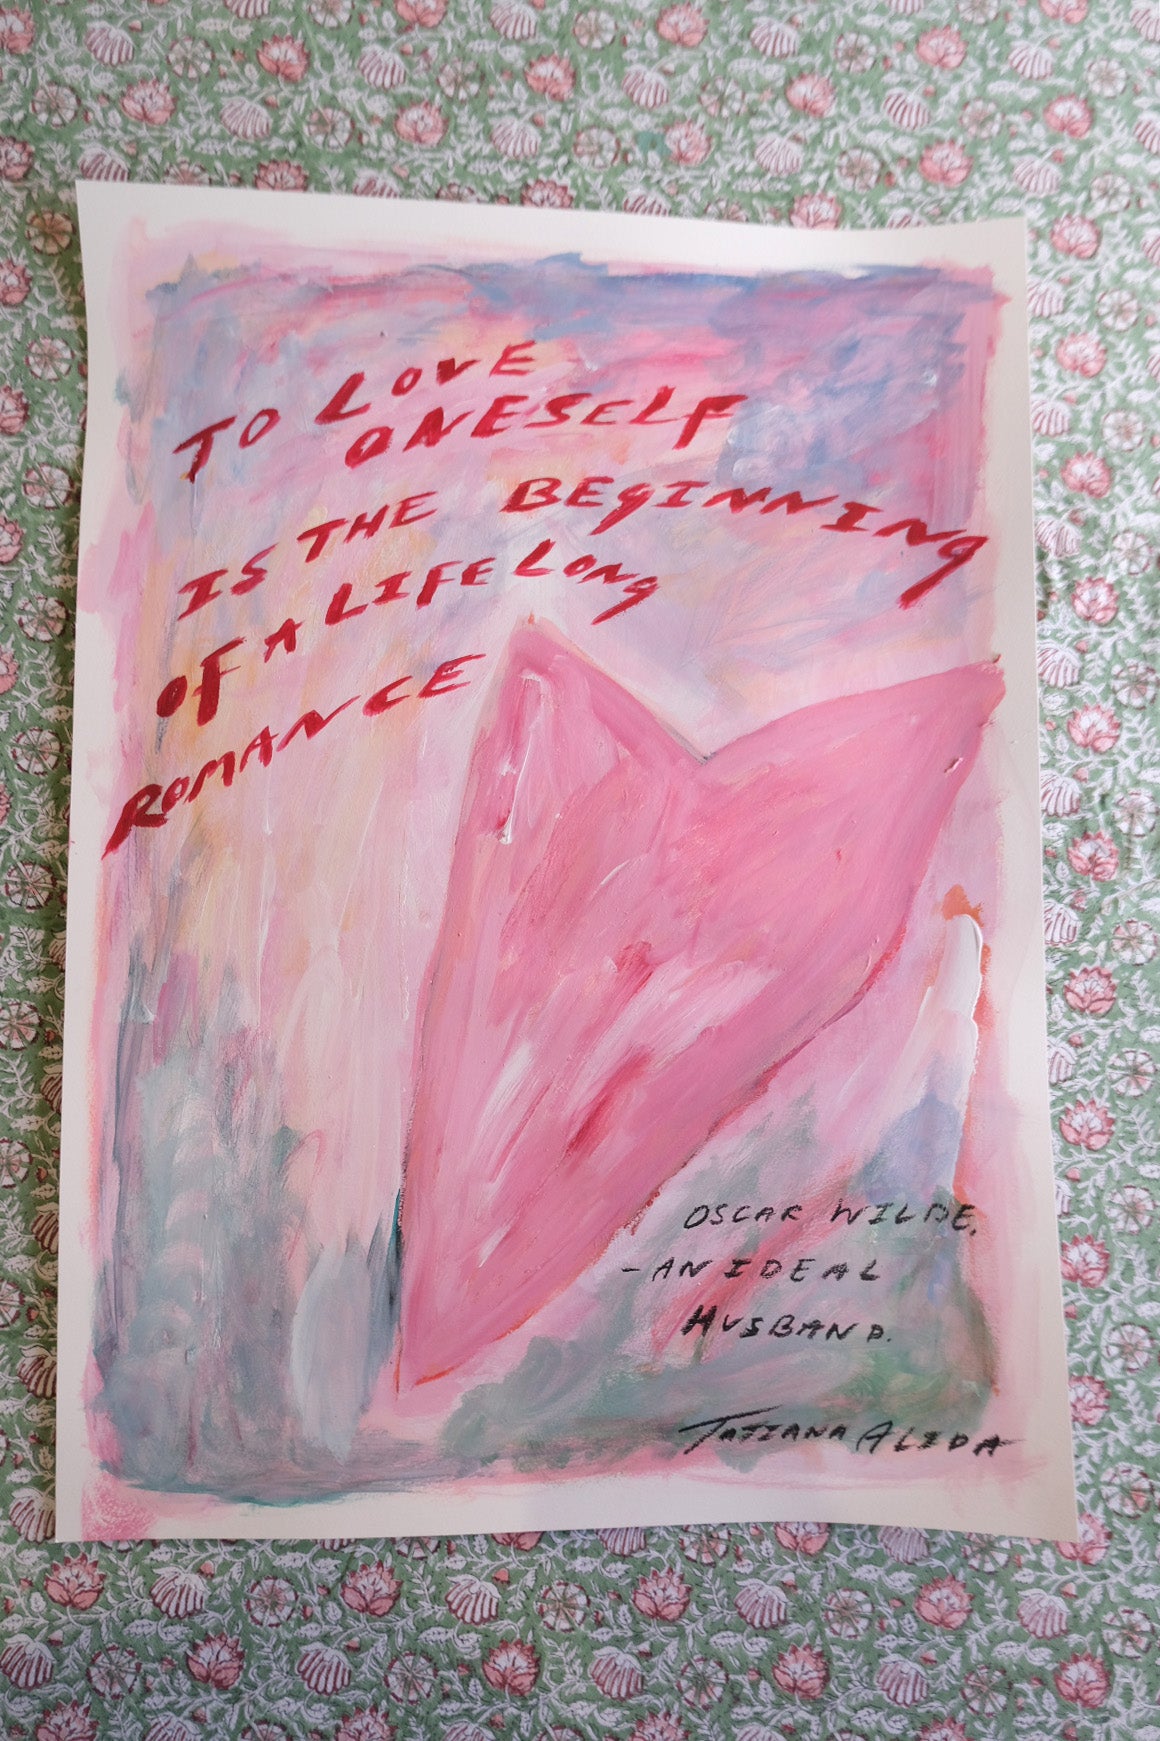 TO LOVE
ONESELF
IS THE BEGINNING
OF A LIFELONG
ROMANCE
OSCAR WILDE.
- AN IDEAL
HUSBAND.
TATIANA ALIDA